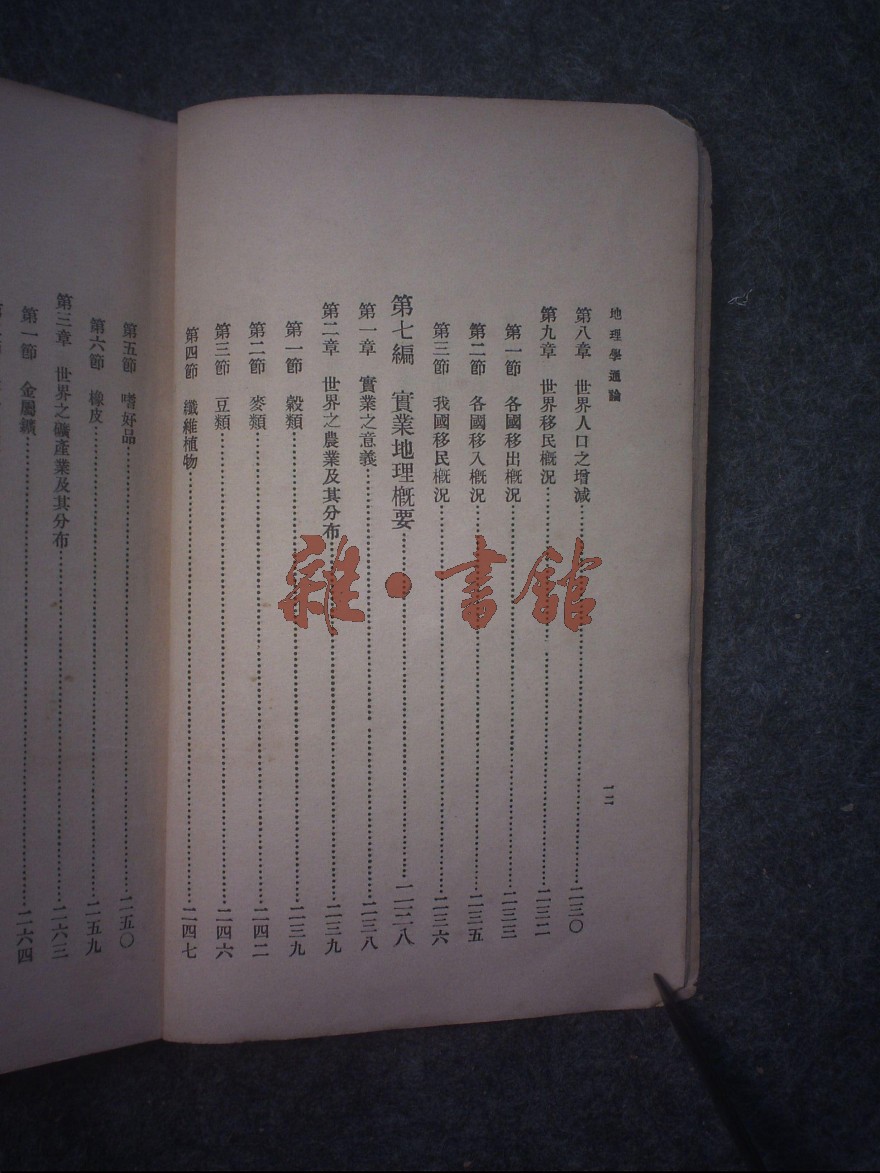 地理學通論
一二
第八章 世界人口之增減……二三〇
第九章 世界移民概況……二三二
第一節 各國移出概況……二三三
第二節 各國移入概況……二三五
第三節 我國移民概況……二三六
第七編 實業地理概要……二二八
第一章 實業之意義……二三八
第二章 世界之農業及其分布……二三九
第一節 穀類……二三九
第二節 麥類……二四二
第三節 豆類……二四六
第四節 纖維植物……二四七
第五節 嗜好品……二五〇
第六節 橡皮……二五九
第三章 世界之礦產業及其分布……二六三
第一節 金屬鑛……二六四
雜·書館